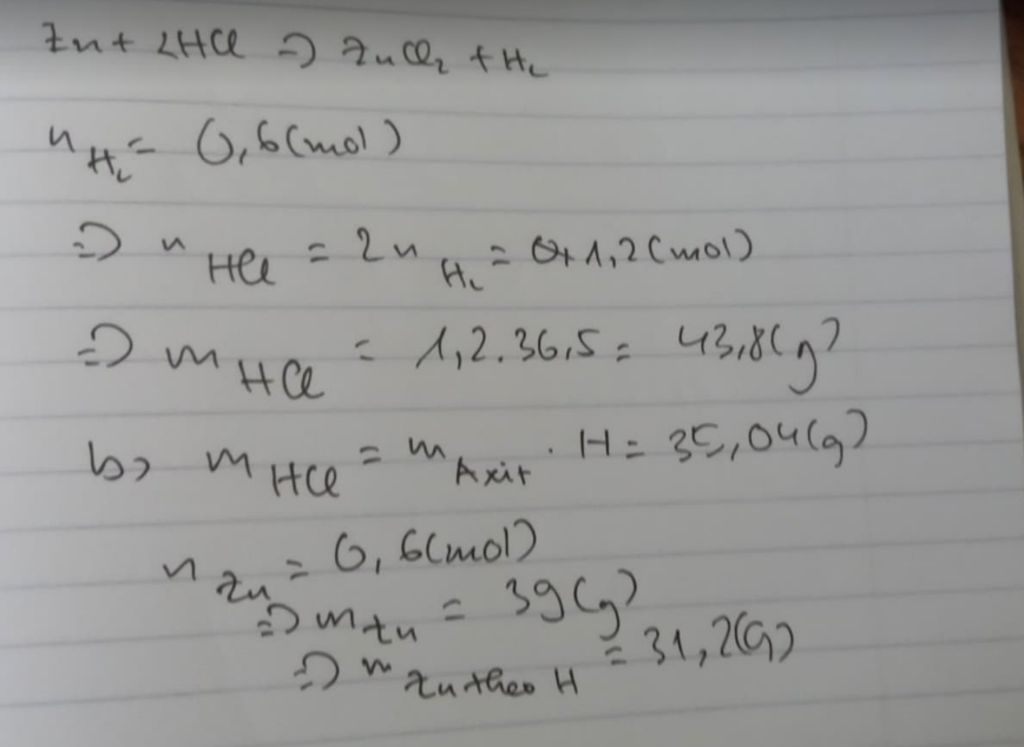 Zn + 2HCl => ZnCl₂ + H₂
n H₂ = 0,6(mol)
=> n HCl = 2n H₂ = 1,2(mol)
=> m HCl = 1,2.36,5 = 43,8(g)
b, m HCl = m Axit . H = 35,04(g)
n Zn = 0,6(mol)
=> m Zn = 39(g)
=> m Zn theo H = 31,2(g)